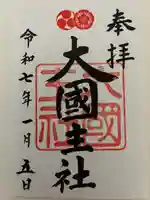 奉拝
大國主社
令和七年一月五日